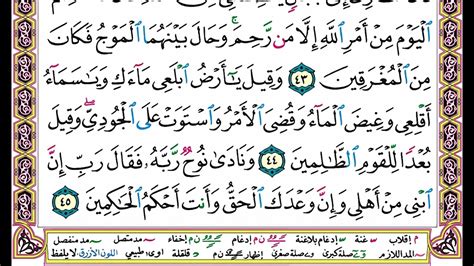 ٱلۡيَوۡمَ مِنۡ أَمۡرِ ٱللَّهِ إِلَّا مَن رَّحِمَۚ وَحَالَ بَيۡنَهُمَا ٱلۡمَوۡجُ فَكَانَ
مِنَ ٱلۡمُغۡرَقِينَ ٤٣ وَقِيلَ يَٰٓأَرۡضُ ٱبۡلَعِي مَآءَكِ وَيَٰسَمَآءُ
أَقۡلِعِي وَغِيضَ ٱلۡمَآءُ وَقُضِيَ ٱلۡأَمۡرُ وَٱسۡتَوَتۡ عَلَى ٱلۡجُودِيِّۖ وَقِيلَ
بُعۡدٗا لِّلۡقَوۡمِ ٱلظَّٰلِمِينَ ٤٤ وَنَادَىٰ نُوحٞ رَّبَّهُۥ فَقَالَ رَبِّ إِنَّ
ٱبۡنِي مِنۡ أَهۡلِي وَإِنَّ وَعۡدَكَ ٱلۡحَقُّ وَأَنتَ أَحۡكَمُ ٱلۡحَٰكِمِينَ ٤٥
م إقلاب غنة إدغام بلاغنة ن م إدغام ن م إخفاء مد متصل مد منفصل
المد اللازم صلة كبرى صلة صغرى إظهار ن م قلقلة اوى طبيعي اللون الأزرق لا يلفظ